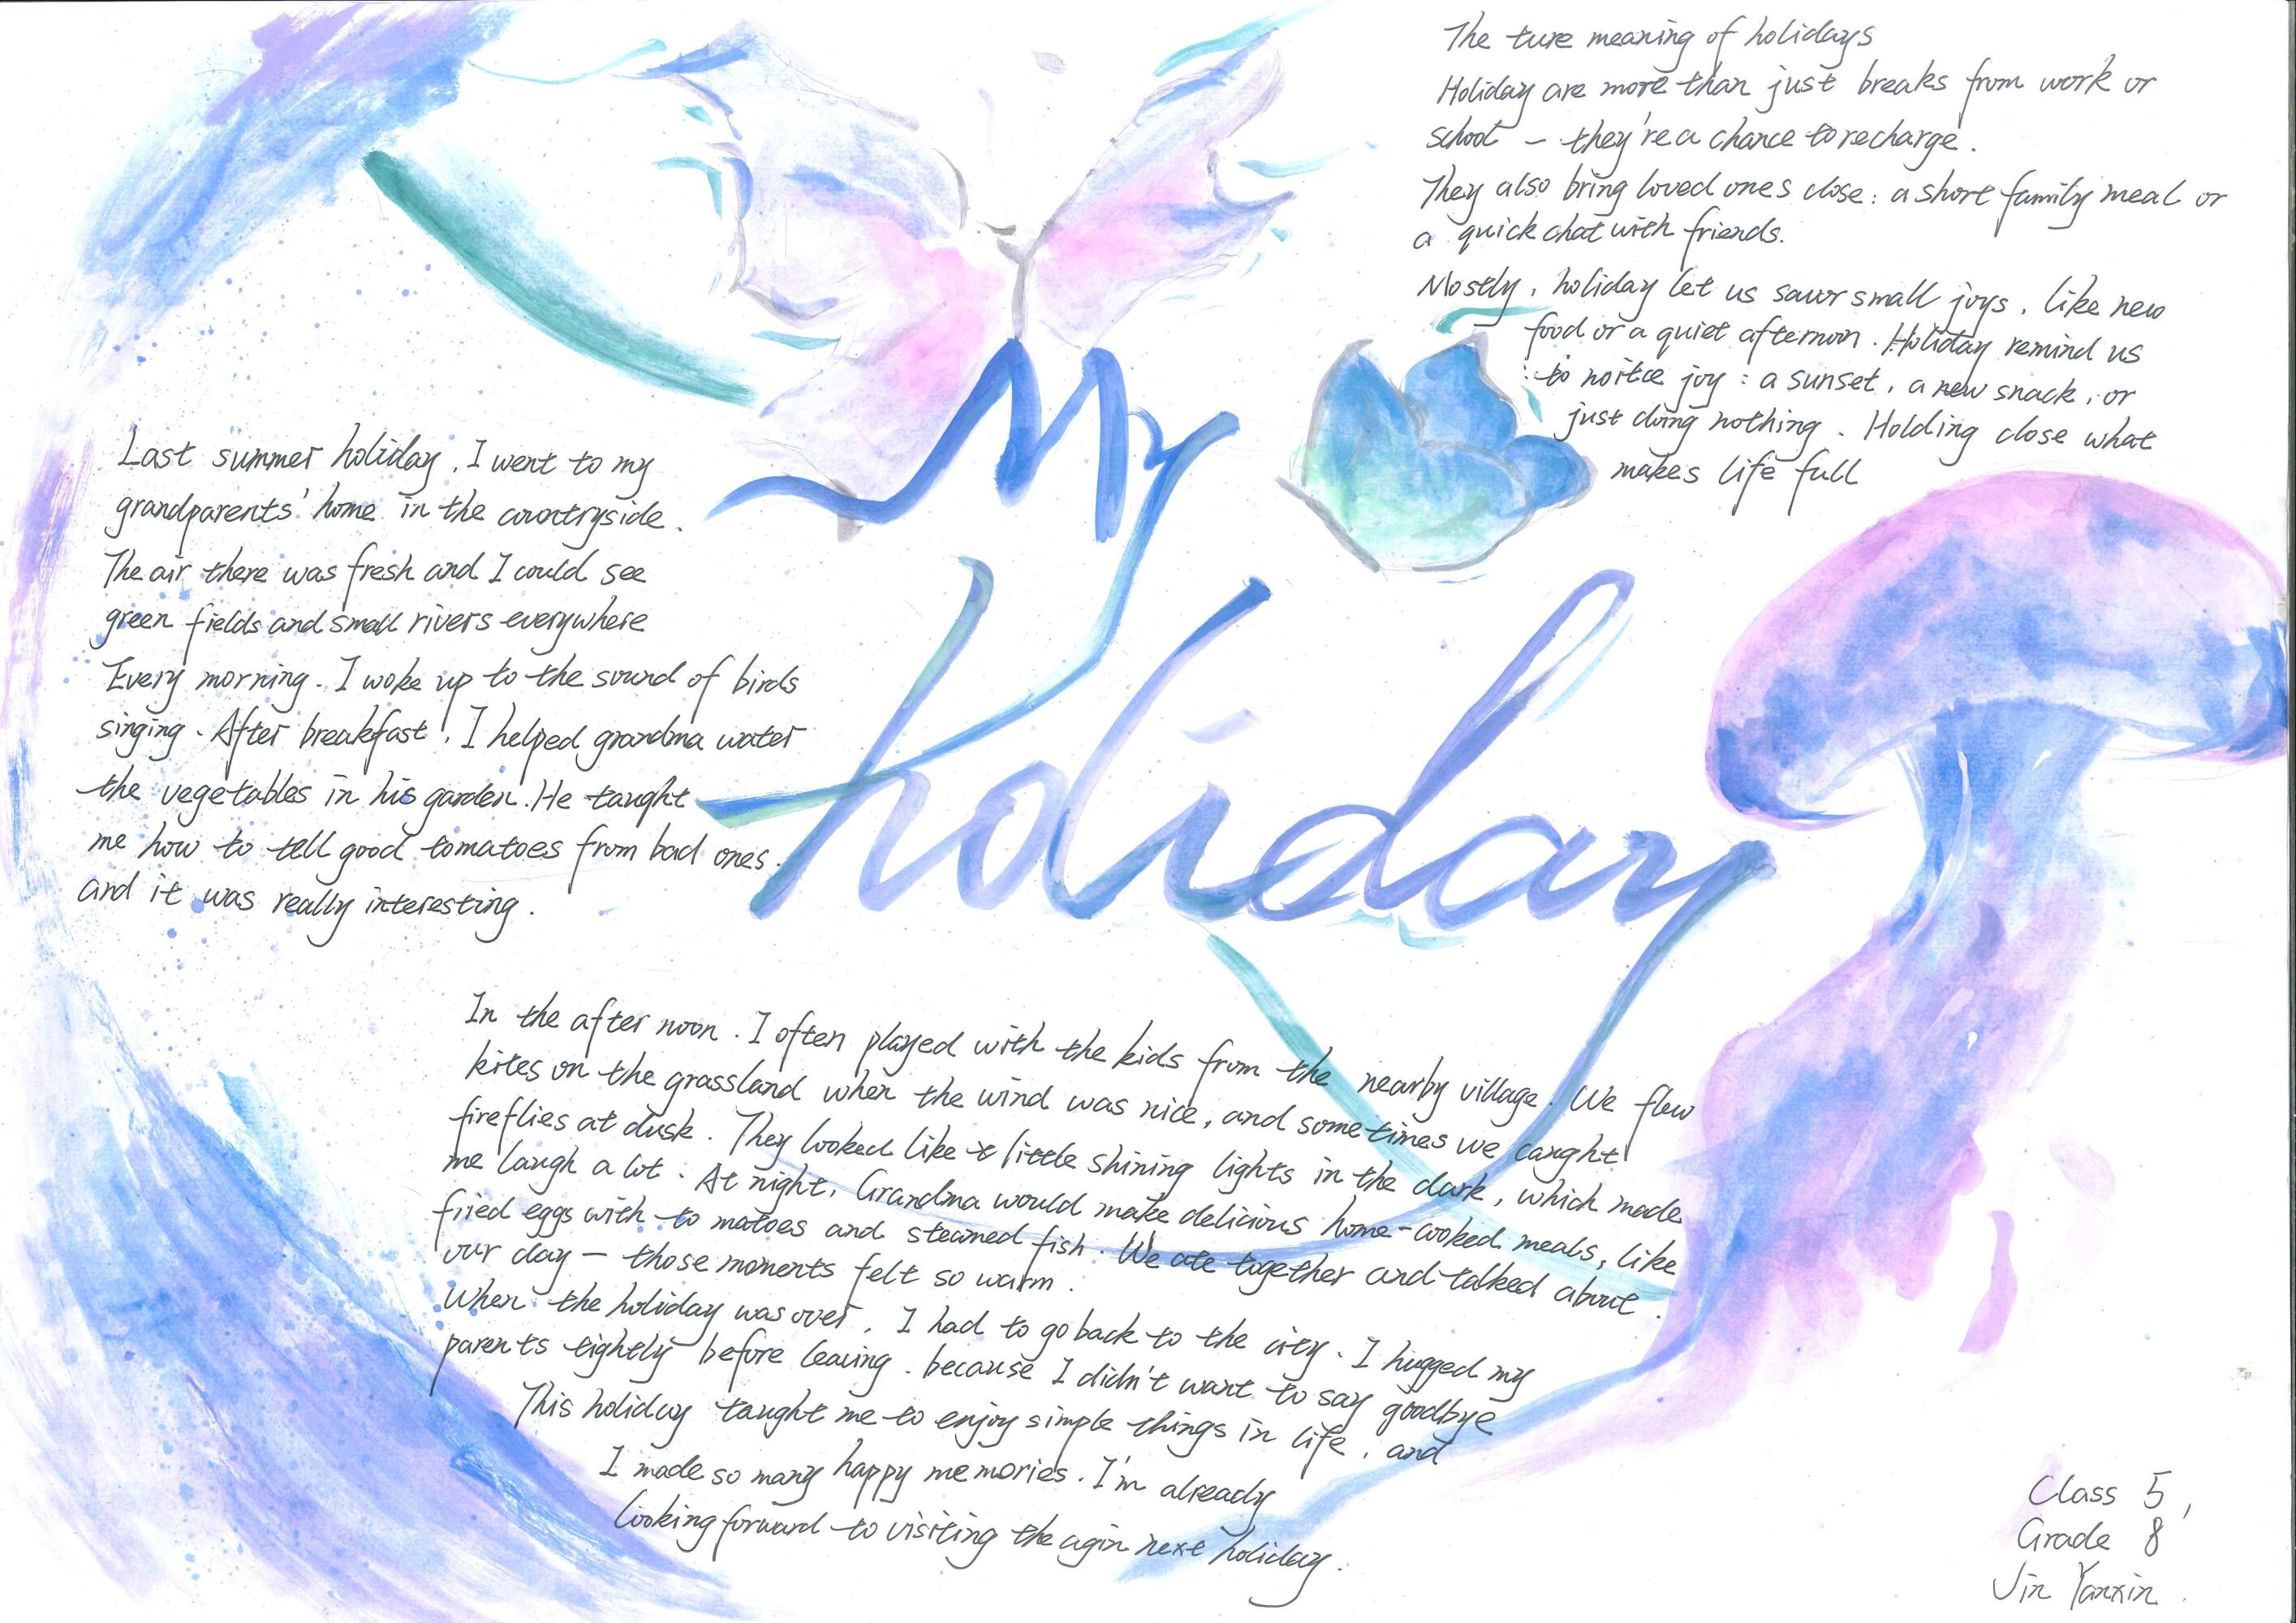 My
Holiday
The ture meaning of holidays
Holiday are more than just breaks from work or
school – they're a chance to recharge.
They also bring loved ones close: a short family meal or
a quick chat with friends.
Mostly, holiday let us savor small joys, like new
food or a quiet afternoon. Holiday remind us
to noitce joy: a sunset, a new snack, or
just doing nothing. Holding close what
makes life full
Last summer holiday, I went to my
grandparents' home in the countryside.
The air there was fresh and I could see
green fields and small rivers everywhere
Every morning. I woke up to the sound of birds
singing. After breakfast, I helped grandma water
the vegetables in his garden. He taught
me how to tell good tomatoes from bad ones.
and it was really interesting.
In the after noon. I often played with the kids from the nearby village. We flew
kites on the grassland when the wind was nice, and sometimes we caught
fireflies at dusk. They looked like little shining lights in the dark, which made
me laugh a lot. At night, Grandma would make delicious home-cooked meals, like
fried eggs with to matoes and steamed fish. We ate together and talked about.
our day – those moments felt so warm.
When the holiday was over, I had to go back to the city. I hugged my
parents tightly before leaving. because I didn't want to say goodbye
This holiday taught me to enjoy simple things in life, and
I made so many happy memories. I'm already
looking forward to visiting the agin next holiday.
Class 5,
Grade 8
Jin Yanxin.